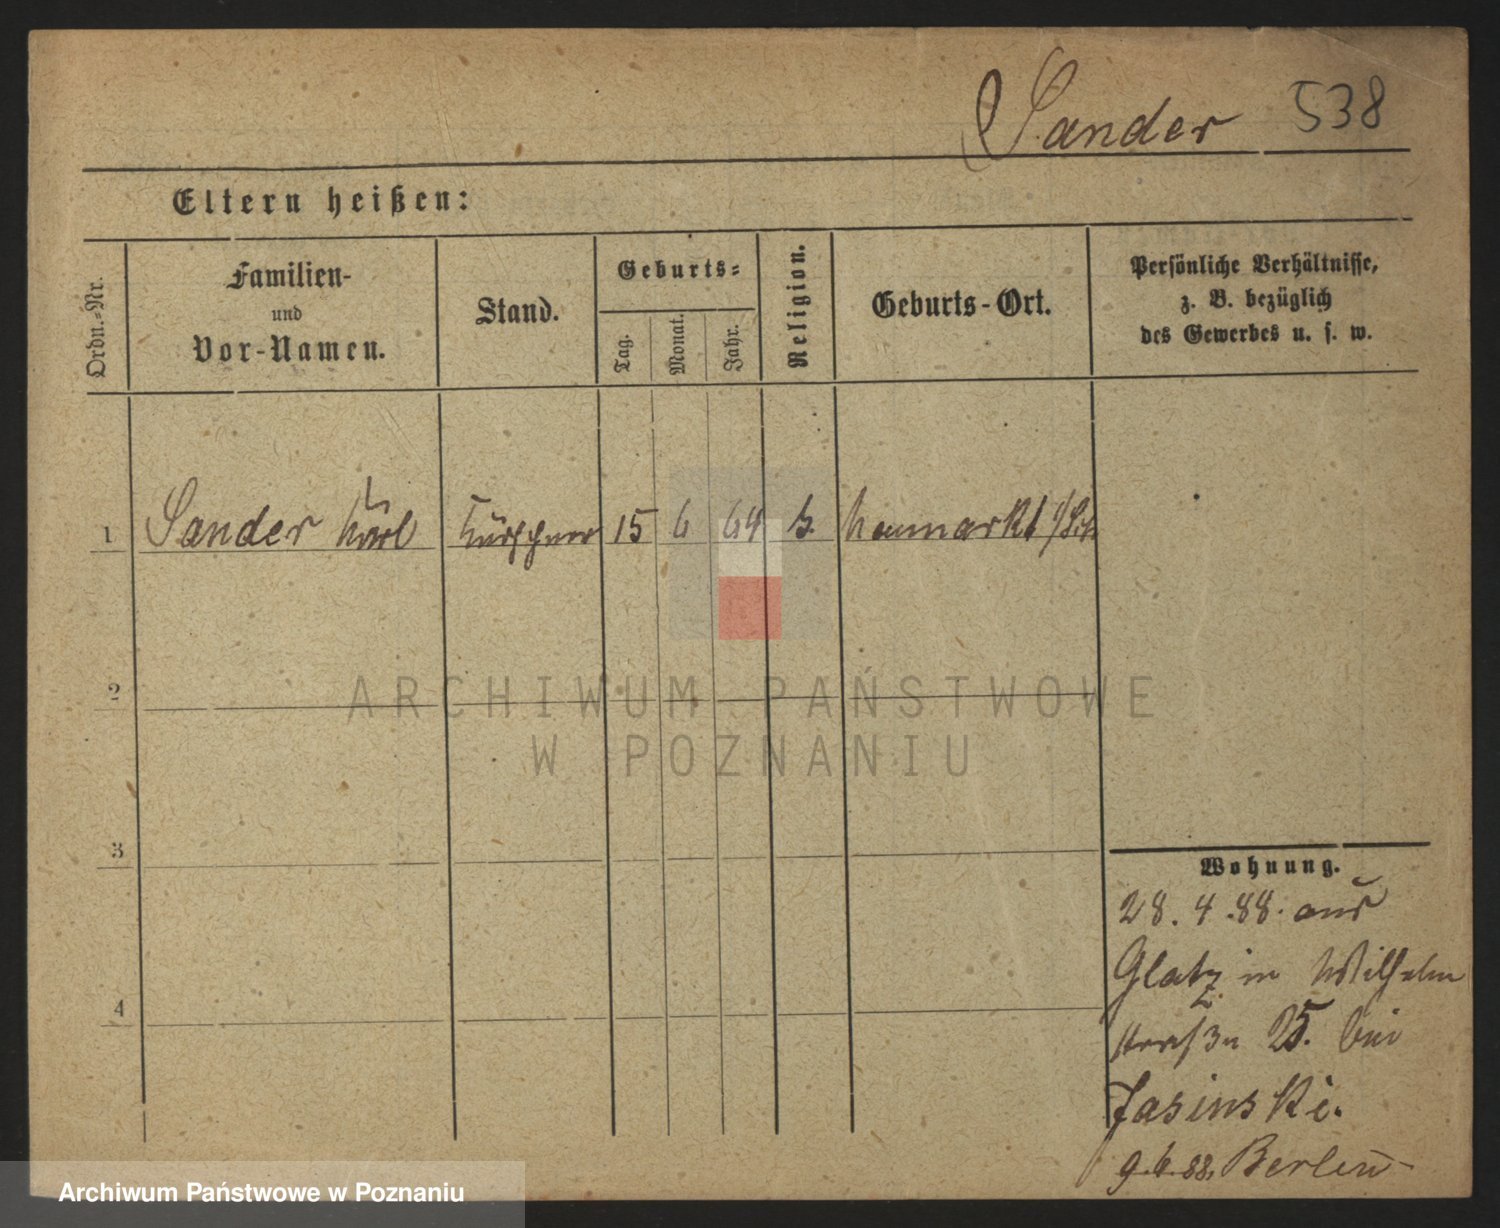 Sander 538
Eltern heißen:
Ordn.-Nr.
Familien-
und
Vor-Namen.
Stand.
Geburts-
Tag.
Monat.
Jahr.
Religion.
Geburts-Ort.
Persönliche Verhältnisse,
z. B. bezüglich
des Gewerbes u. s. w.
1 Sander Karl Kürschner 15 6 64 Neumarkt i/Sch
2
3
4
Wohnung.
28.4.88. aus
Glatz in Wilhelm
straße 25. bei
Jasinski.
9.6.88. Berlin
ARCHIWUM PAŃSTWOWE
W POZNANIU
Archiwum Państwowe w Poznaniu